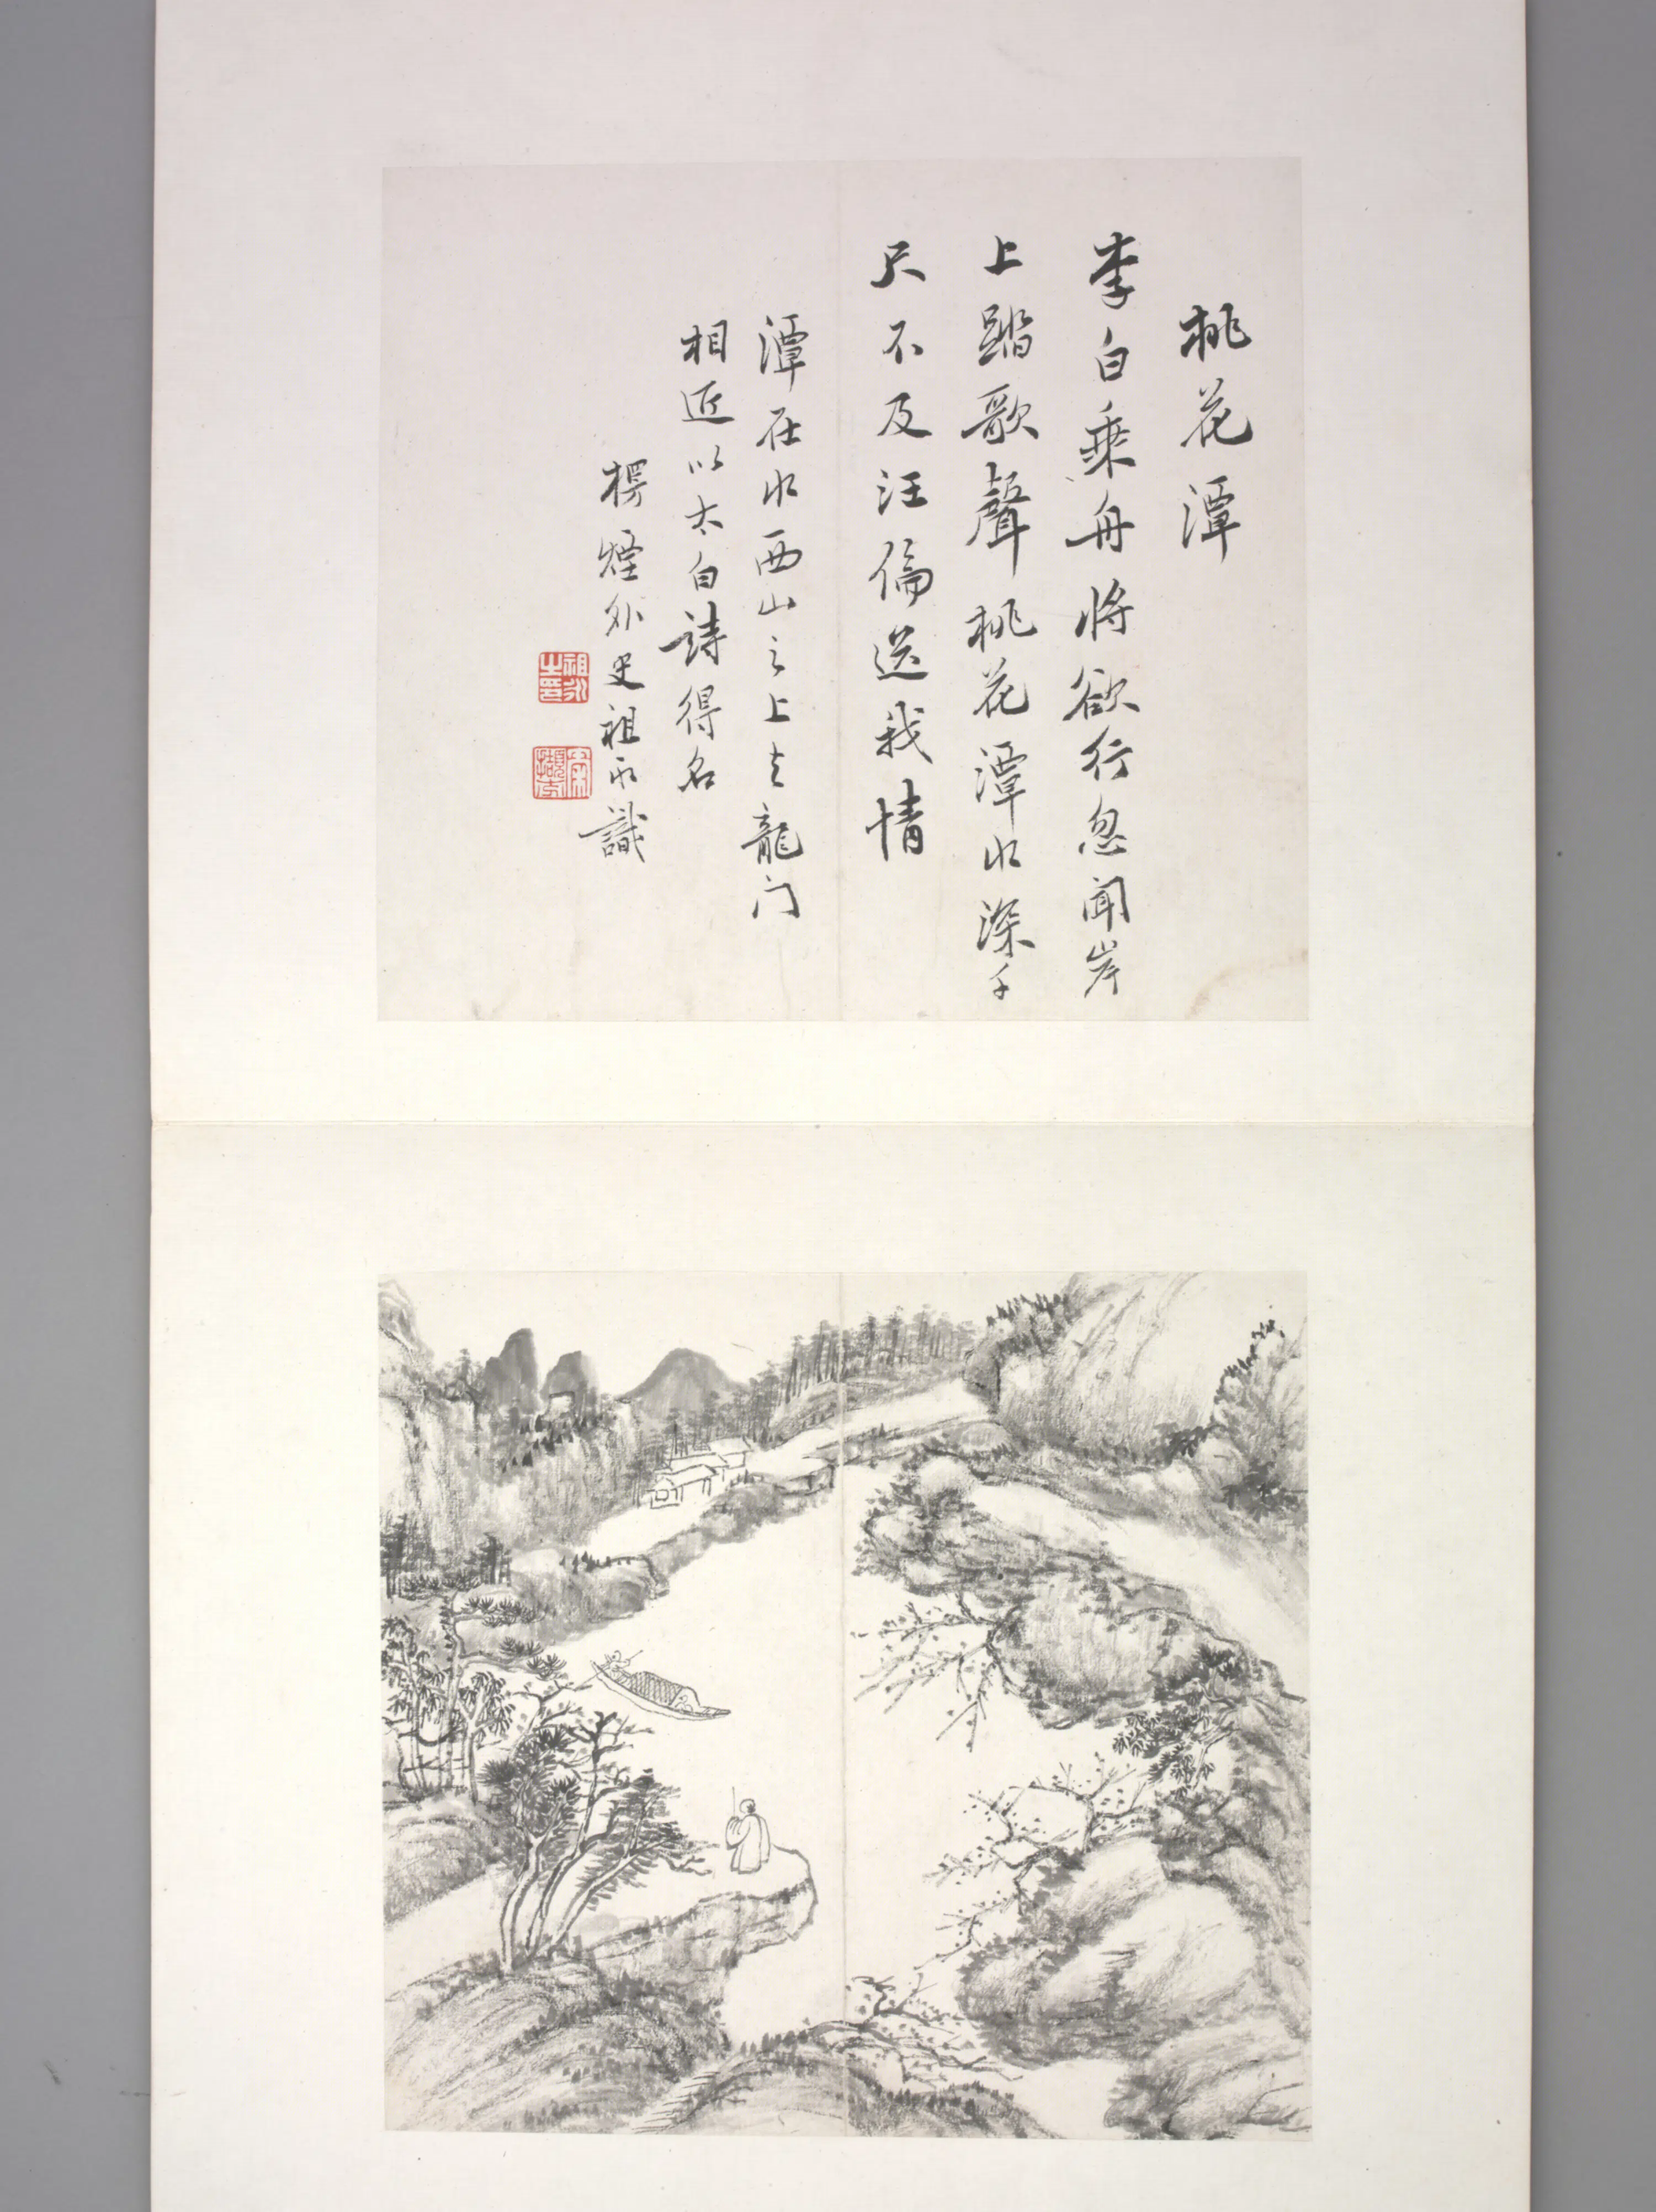 桃花潭
李白乗舟將欲行忽聞岸
上踏歌聲桃花潭水深千
尺不及汪倫送我情
潭在水西山之上去龍门
相近以太白詩得名
楞煙外史祖永識
祖永之印